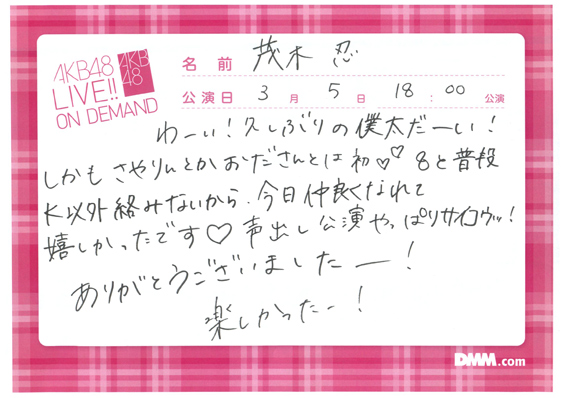 AKB48
LIVE!!
ON DEMAND
AKB
48
名前 茂木 忍
公演日 3月 5日 18:00 公演
わーい!久しぶりの僕太だーい!
しかもさやりんとかおださんとは初♡♡ 8と普段
K以外絡みないから、今日仲良くなれて
嬉しかったです♡声出し公演やっぱりサイコウッ!
ありがとうございましたー!
楽しかったー!
DMM.com